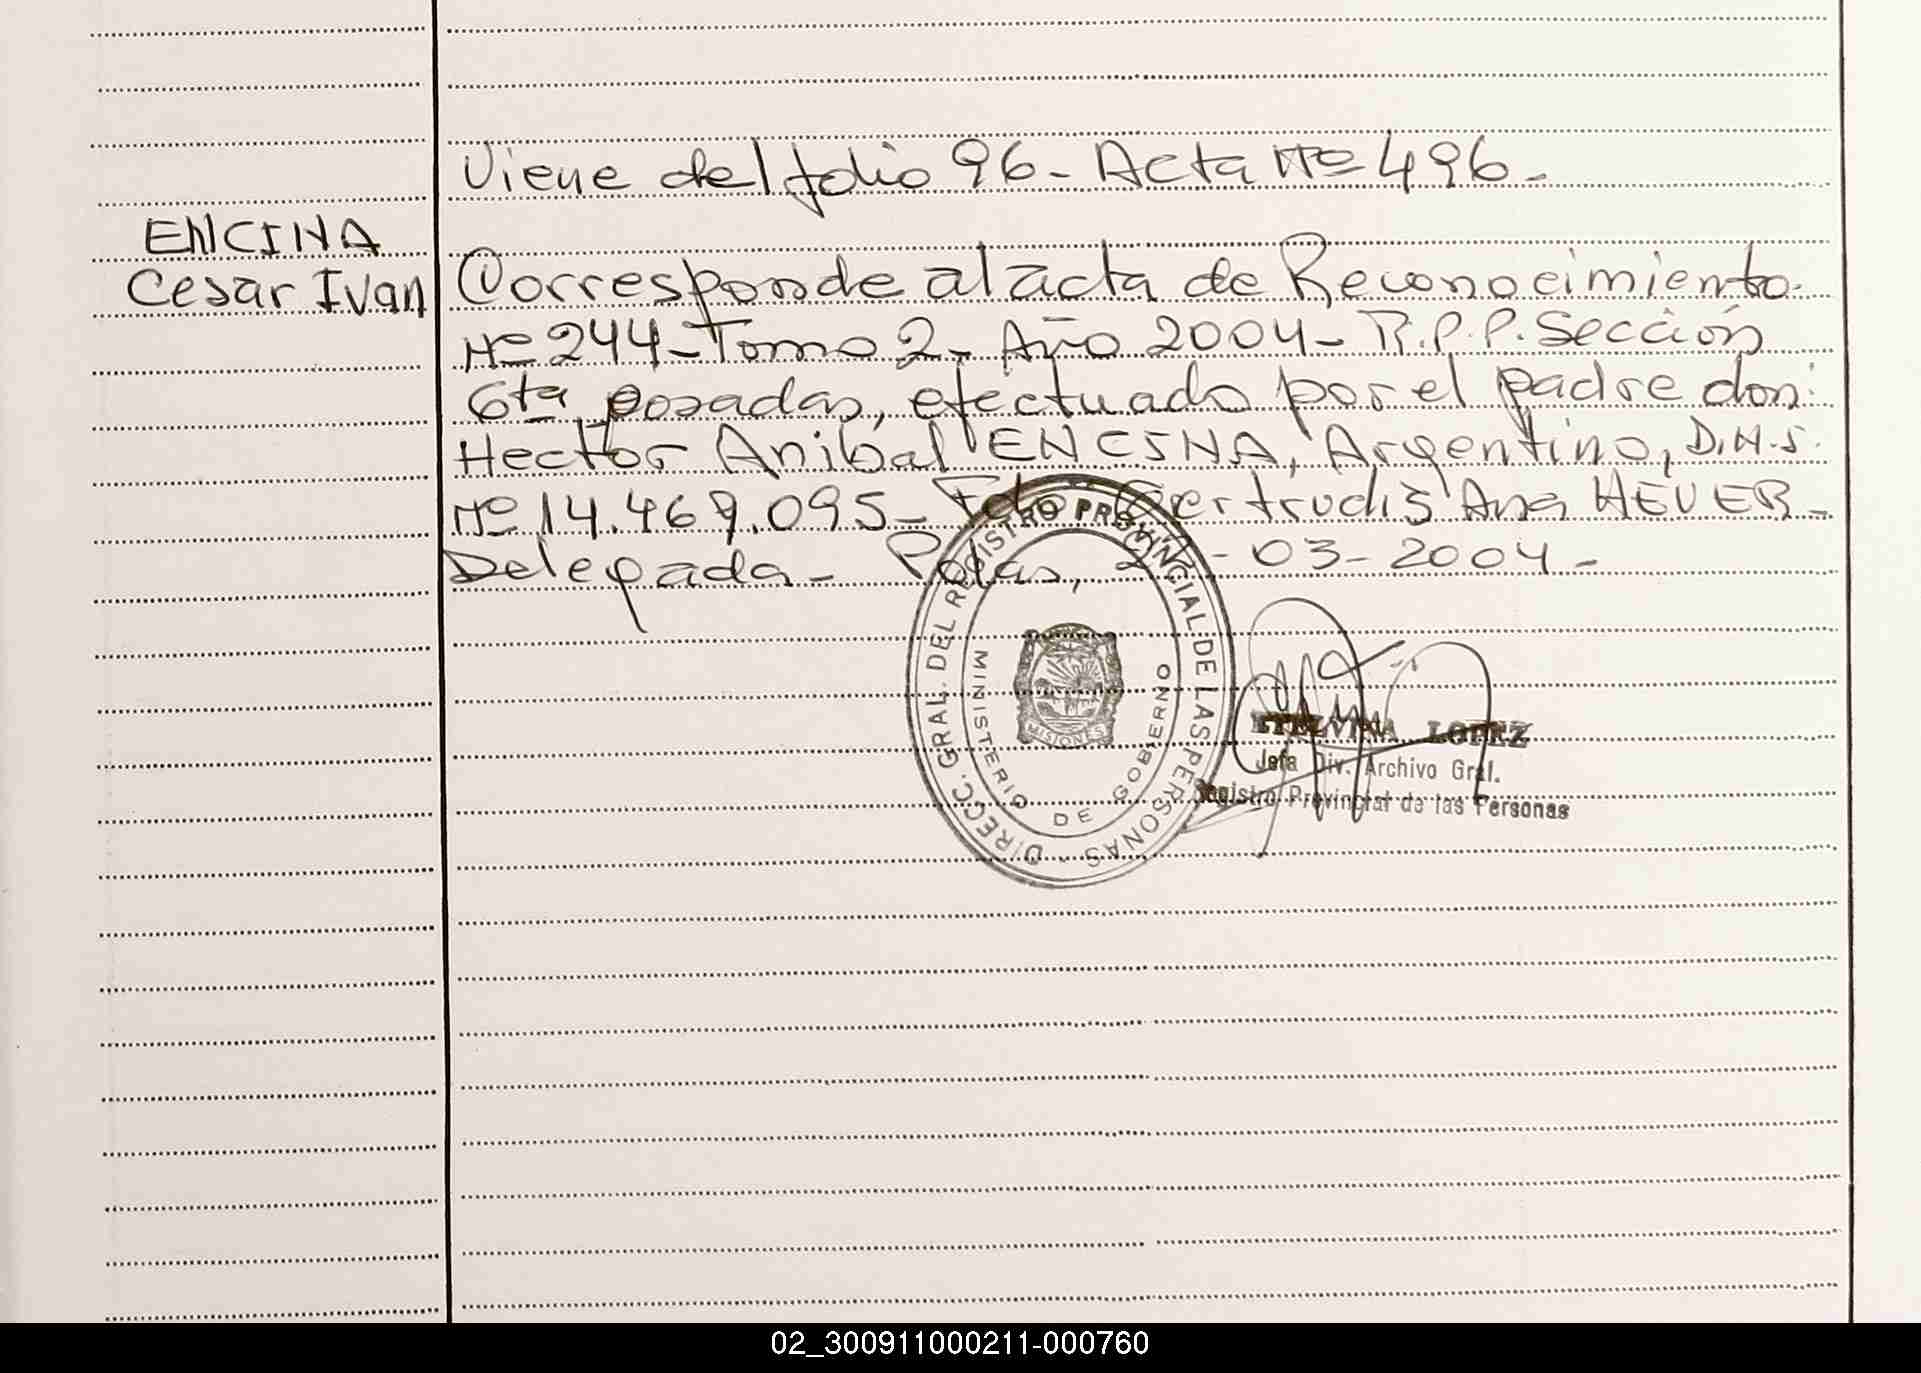 Viene del folio 96 - Acta Nº 496 -
ENCINA
Cesar Ivan
Corresponde al acta de Reconocimiento
Nº 244 - Tomo 2 - Año 2004 - R.P.P. Sección
6ta posadas, efectuado por el padre don:
Hector Anibal ENCINA, Argentino, D.N.I.
Nº 14.469.095 - Fdo Gertrudis Ana HEUER -
Delegada - Pdas, -03-2004 -
DIRECC. GRAL. DEL REGISTRO PROVINCIAL DE LAS PERSONAS -
MINISTERIO DE GOBIERNO
MISIONES
ETELVINA LOPEZ
Jefa Div. Archivo Gral.
Registro Provincial de las Personas
02_300911000211-000760